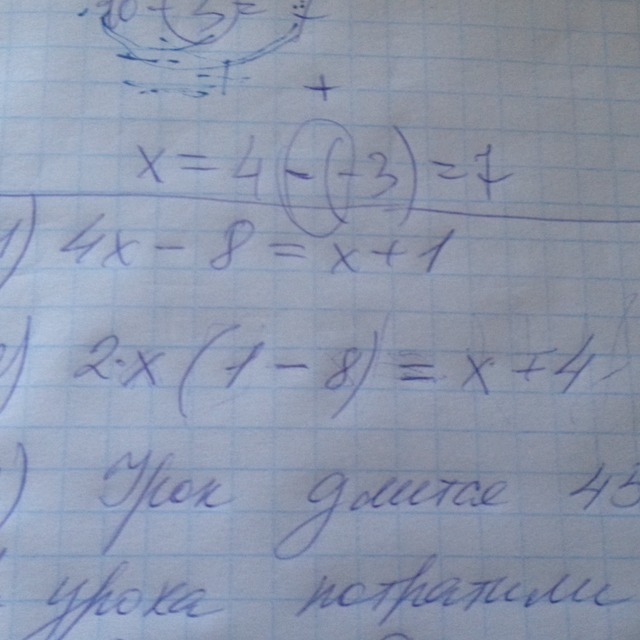 +
x = 4 - (-3) = 7
4x - 8 = x + 1
2·x (1 - 8) = x + 4
Урок длится 45
урока потратили